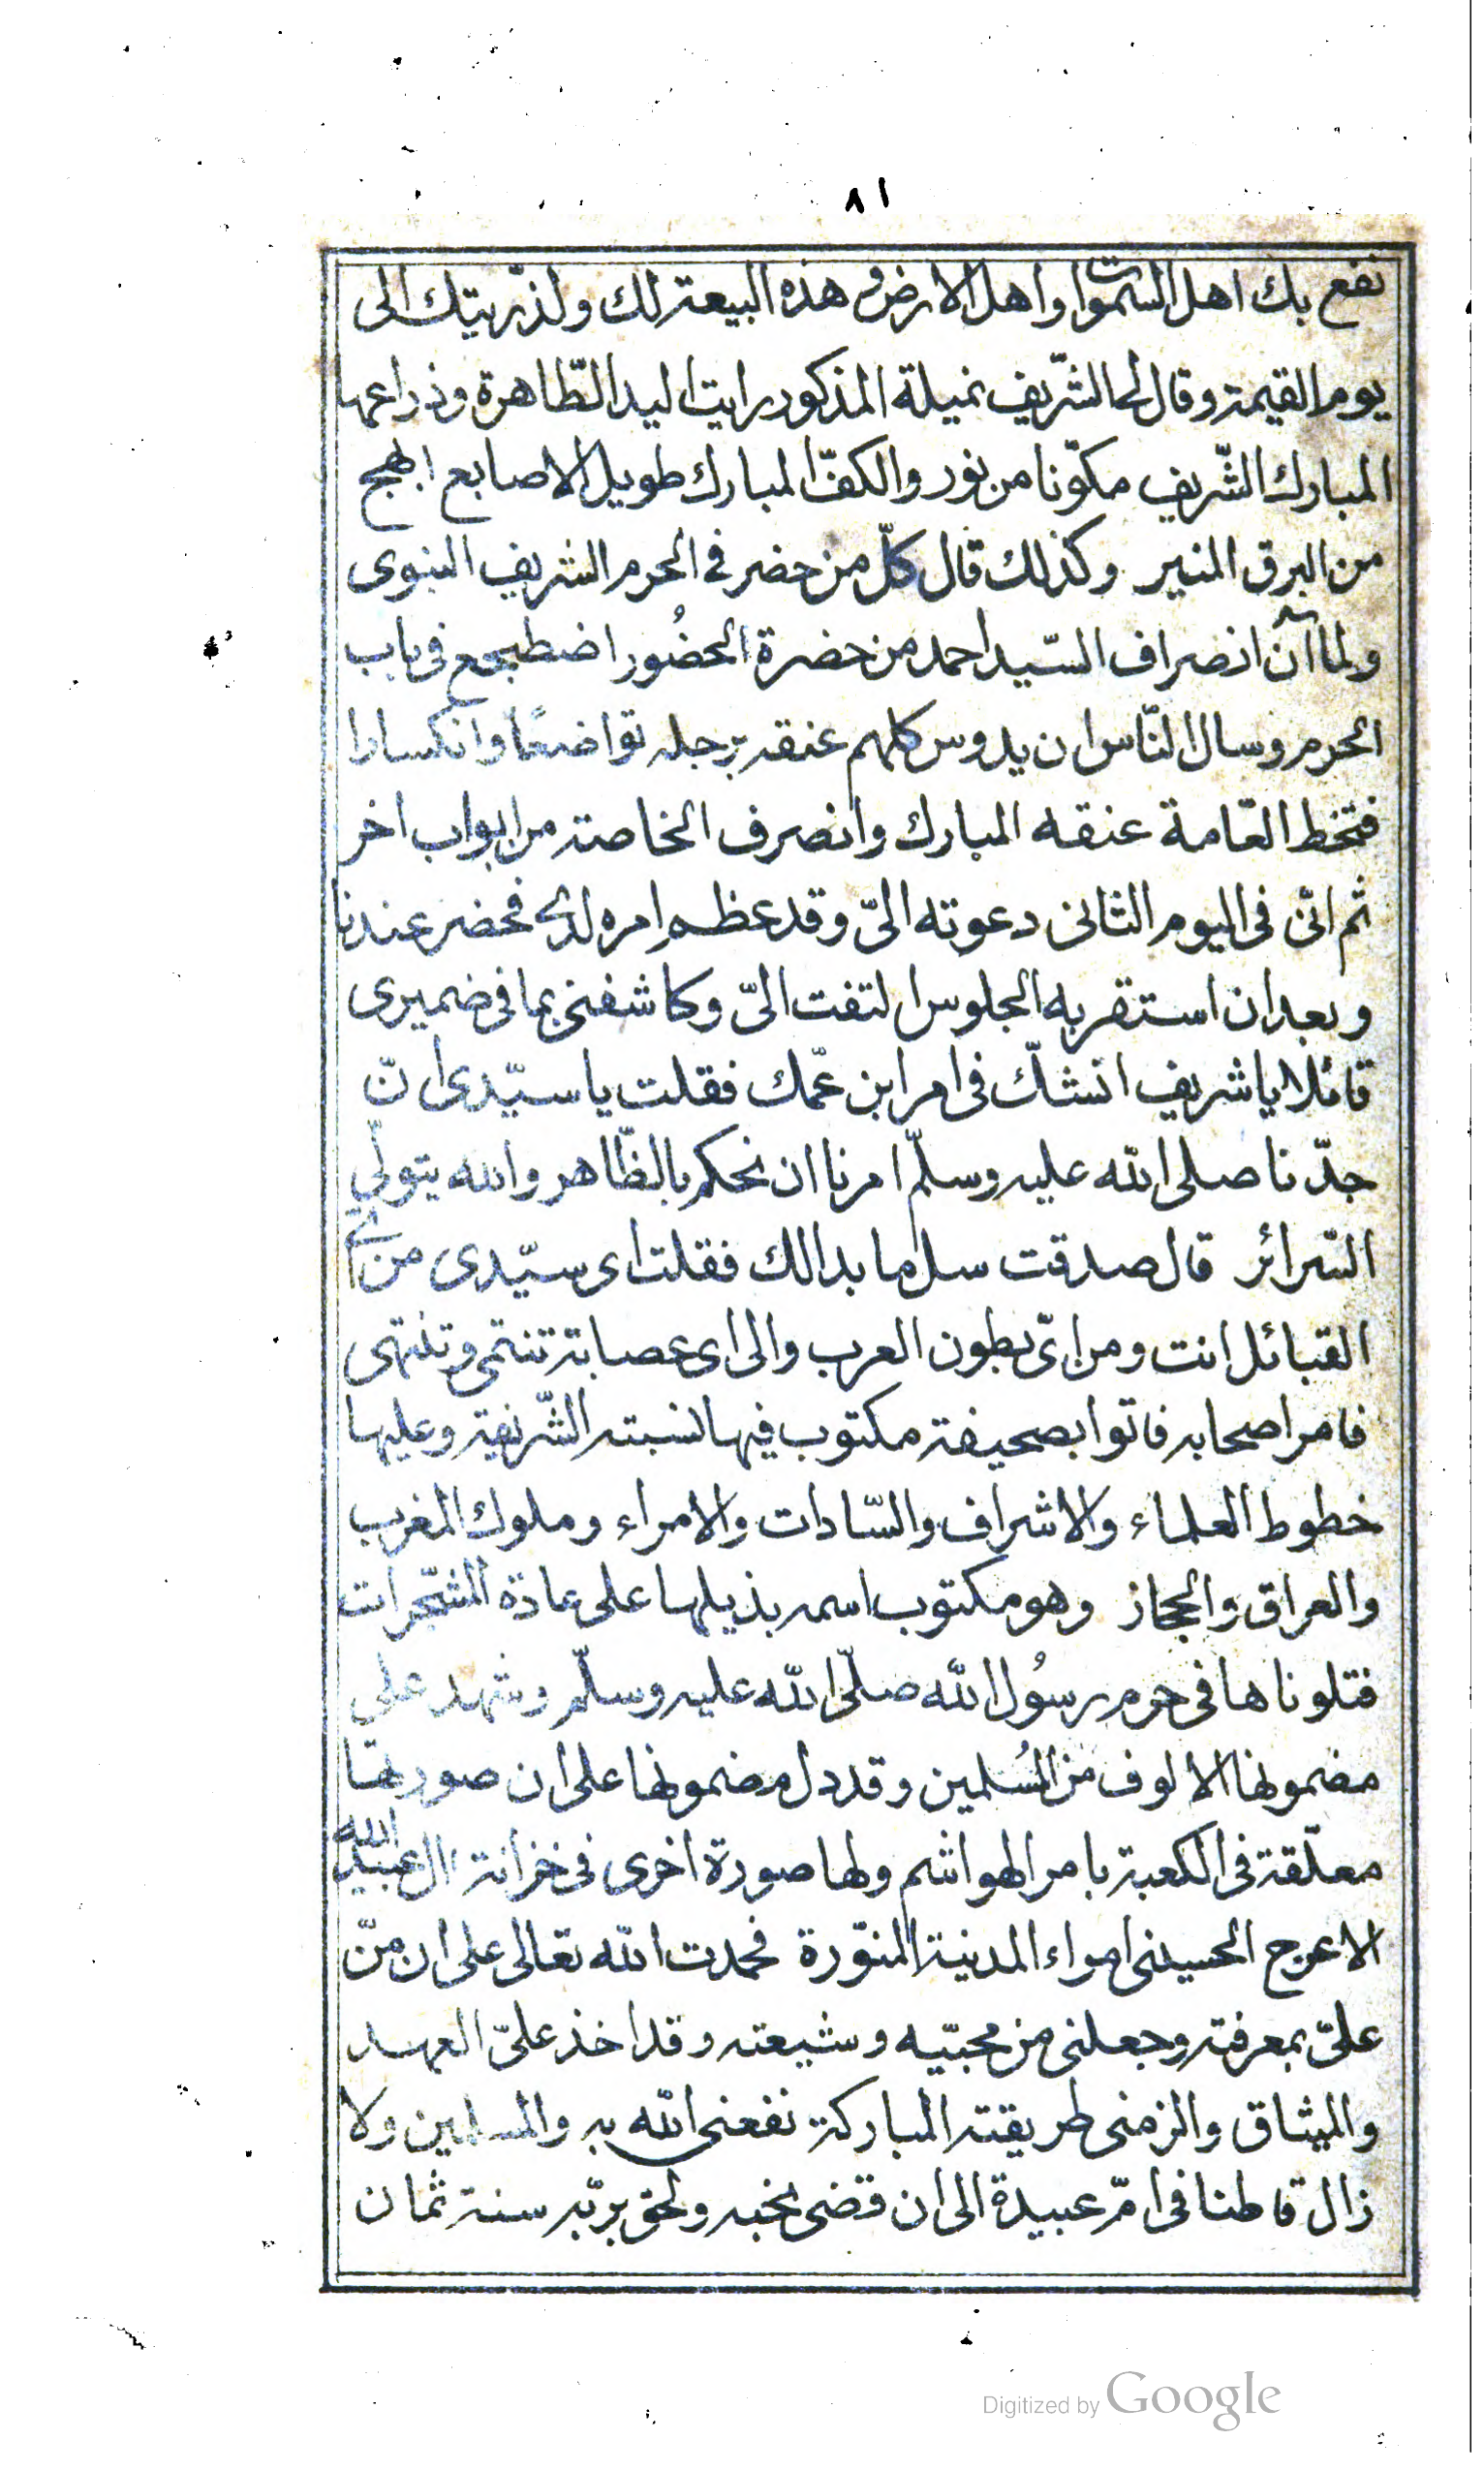 ٨١
نفع بك اهل السموات واهل الارض وهذه البيعة لك ولذريتك الى
يوم القيمة وقال لى الشّريف نميلة المذكور رايت اليد الطّاهرة وذراعها
المبارك الشّريف مكوّنا من نور والكفّ المبارك طويل الاصابع ابهج
من البرق المنير وكذلك قال كلّ من حضر فى الحرم الشريف النبوى
ولما آن انصراف السّيد احمد من حضرة الحضُور اضطجع فى باب
الحرم وسال النّاس ان يدوس كلهم عنقه برجله تواضعًا وانكسارا
فتخط العّامة عنقه المبارك وانصرف الخاصة من ابواب اخر
ثم انّى فى اليوم الثانى دعوته الىّ وقد عظم امره لدىّ فحضر عندنا
وبعد ان استقر به الجلوس التفت الىّ وكاشفنى بما فى ضميرى
قائلا يا شريف انشكّ فى امر ابن عمّك فقلت يا سيّدى انّ
جدّنا صلى الله عليه وسلّم امرنا ان نحكم بالظّاهر والله يتولّى
السّرائر قال صدقت سل ما بدالك فقلت اى سيّدى من اى
القبائل انت ومن اىّ بطون العرب والى اى عصابة تنتمى وتنتهى
فامر اصحابه فاتوا بصحيفة مكتوب فيها نسبته الشّريفة وعليها
خطوط العلماء والاشراف والسّادات والامراء وملوك المغرب
والعراق والحجاز وهو مكتوب اسمه بذيلها على عادة المشجّرات
فتلوناها فى حرم رسُول الله صلّى الله عليه وسلّم وشهد على
مضمونها الالوف من المُسلمين وقد دل مضمونها على ان صورتها
معلّقة فى الكعبة بامر الهواشم ولها صورة اخرى فى خزانة ال عبيد الله
الاعرج الحسينى امراء المدينة المنوّرة فحمدت الله تعالى على ان منّ
علىّ بمعرفته وجعلنى من محبّيه وشيعته وقد اخذ علىّ العهد
والميثاق والزمنى طريقته المباركة نفعنى الله به والمسلمين ولا
زال قاطنا فى امّ عبيدة الى ان قضى نحبه ولحق بربّه سنة ثمان
Digitized by Google